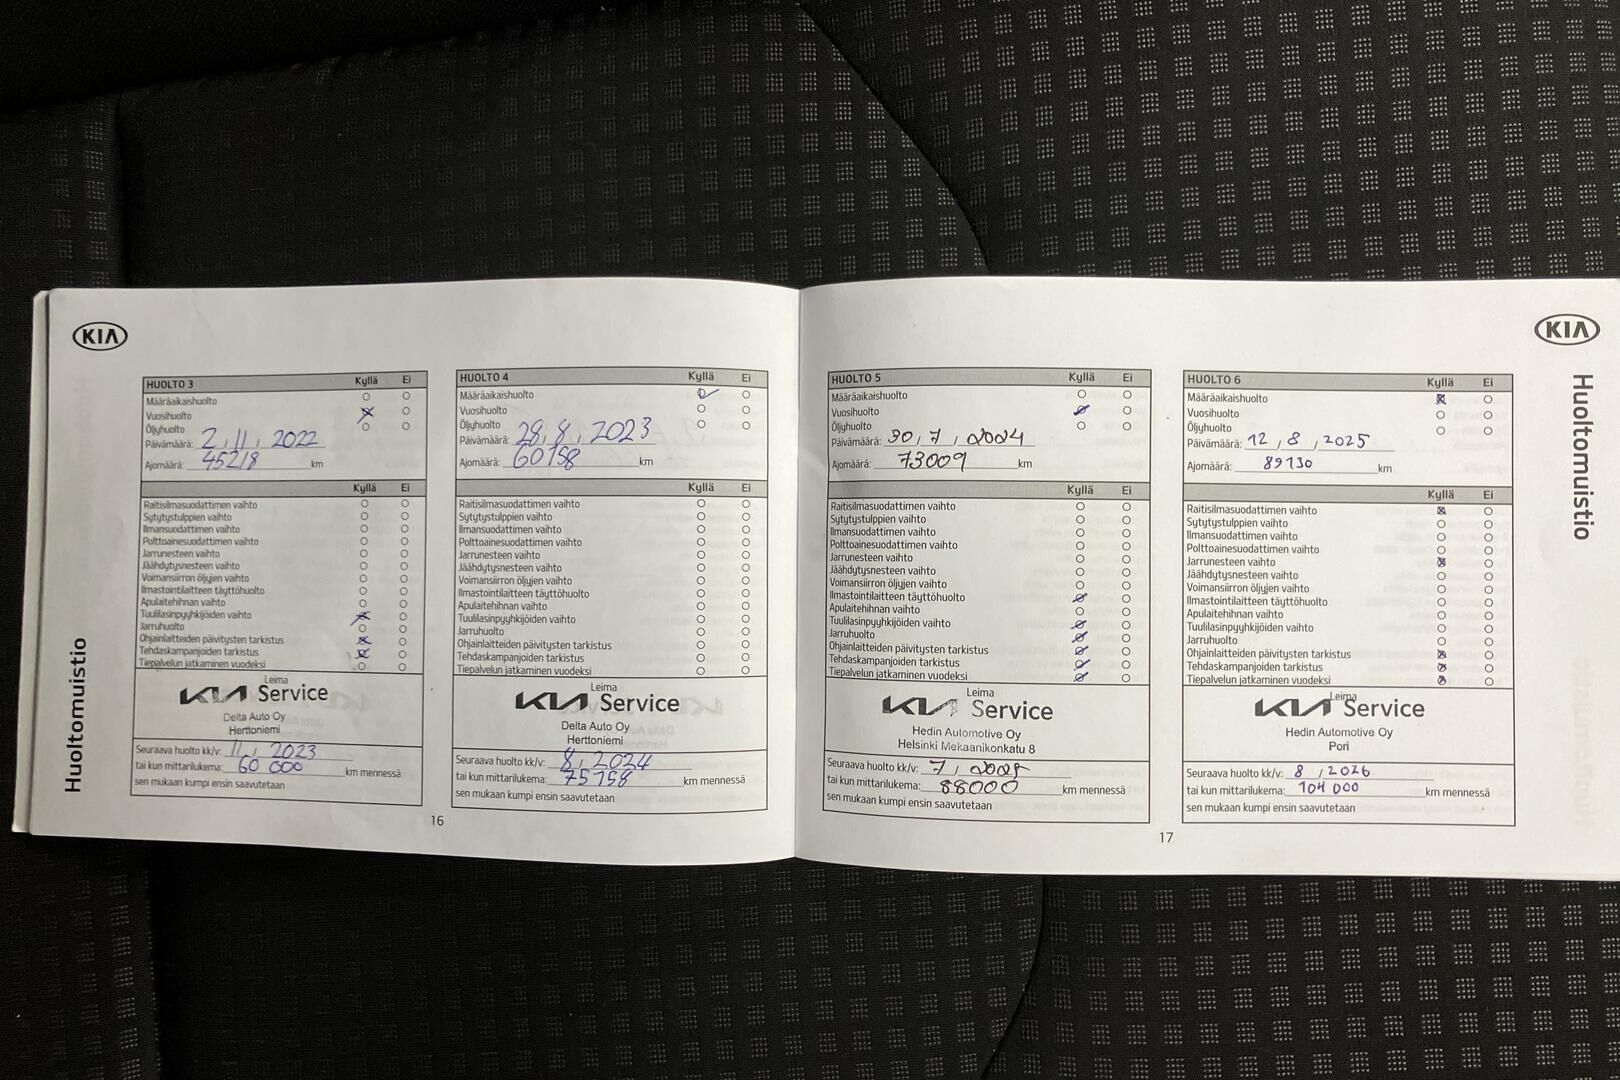 KIA
Huoltomuistio
HUOLTO 3 Kyllä Ei
Määräaikaishuolto
Vuosihuolto
Öljyhuolto
Päivämäärä: 2, 11, 2022
Ajomäärä: 45218 km
Kyllä Ei
Raitisilmasuodattimen vaihto
Sytytystulppien vaihto
Ilmansuodattimen vaihto
Polttoainesuodattimen vaihto
Jarrunesteen vaihto
Jäähdytysnesteen vaihto
Voimansiirron öljyjen vaihto
Ilmastointilaitteen täyttöhuolto
Apulaitehihnan vaihto
Tuulilasinpyyhkijöiden vaihto
Jarruhuolto
Ohjainlaitteiden päivitysten tarkistus
Tehdaskampanjoiden tarkistus
Tiepalvelun jatkaminen vuodeksi
Leima
KIA Service
Delta Auto Oy
Herttoniemi
Seuraava huolto kk/v: 11, 2023
tai kun mittarilukema: 60 000 km mennessä
sen mukaan kumpi ensin saavutetaan
HUOLTO 4 Kyllä Ei
Määräaikaishuolto
Vuosihuolto
Öljyhuolto
Päivämäärä: 28, 8, 2023
Ajomäärä: 60158 km
Kyllä Ei
Raitisilmasuodattimen vaihto
Sytytystulppien vaihto
Ilmansuodattimen vaihto
Polttoainesuodattimen vaihto
Jarrunesteen vaihto
Jäähdytysnesteen vaihto
Voimansiirron öljyjen vaihto
Ilmastointilaitteen täyttöhuolto
Apulaitehihnan vaihto
Tuulilasinpyyhkijöiden vaihto
Jarruhuolto
Ohjainlaitteiden päivitysten tarkistus
Tehdaskampanjoiden tarkistus
Tiepalvelun jatkaminen vuodeksi
Leima
KIA Service
Delta Auto Oy
Herttoniemi
Seuraava huolto kk/v: 8, 2024
tai kun mittarilukema: 75158 km mennessä
sen mukaan kumpi ensin saavutetaan
16
HUOLTO 5 Kyllä Ei
Määräaikaishuolto
Vuosihuolto
Öljyhuolto
Päivämäärä: 30, 7, 2024
Ajomäärä: 73009 km
Kyllä Ei
Raitisilmasuodattimen vaihto
Sytytystulppien vaihto
Ilmansuodattimen vaihto
Polttoainesuodattimen vaihto
Jarrunesteen vaihto
Jäähdytysnesteen vaihto
Voimansiirron öljyjen vaihto
Ilmastointilaitteen täyttöhuolto
Apulaitehihnan vaihto
Tuulilasinpyyhkijöiden vaihto
Jarruhuolto
Ohjainlaitteiden päivitysten tarkistus
Tehdaskampanjoiden tarkistus
Tiepalvelun jatkaminen vuodeksi
Leima
KIA Service
Hedin Automotive Oy
Helsinki Mekaanikonkatu 8
Seuraava huolto kk/v: 7, 2025
tai kun mittarilukema: 88000 km mennessä
sen mukaan kumpi ensin saavutetaan
HUOLTO 6 Kyllä Ei
Määräaikaishuolto
Vuosihuolto
Öljyhuolto
Päivämäärä: 12, 8, 2025
Ajomäärä: 89130 km
Kyllä Ei
Raitisilmasuodattimen vaihto
Sytytystulppien vaihto
Ilmansuodattimen vaihto
Polttoainesuodattimen vaihto
Jarrunesteen vaihto
Jäähdytysnesteen vaihto
Voimansiirron öljyjen vaihto
Ilmastointilaitteen täyttöhuolto
Apulaitehihnan vaihto
Tuulilasinpyyhkijöiden vaihto
Jarruhuolto
Ohjainlaitteiden päivitysten tarkistus
Tehdaskampanjoiden tarkistus
Tiepalvelun jatkaminen vuodeksi
Leima
KIA Service
Hedin Automotive Oy
Pori
Seuraava huolto kk/v: 8, 2026
tai kun mittarilukema: 104 000 km mennessä
sen mukaan kumpi ensin saavutetaan
17
KIA
Huoltomuistio